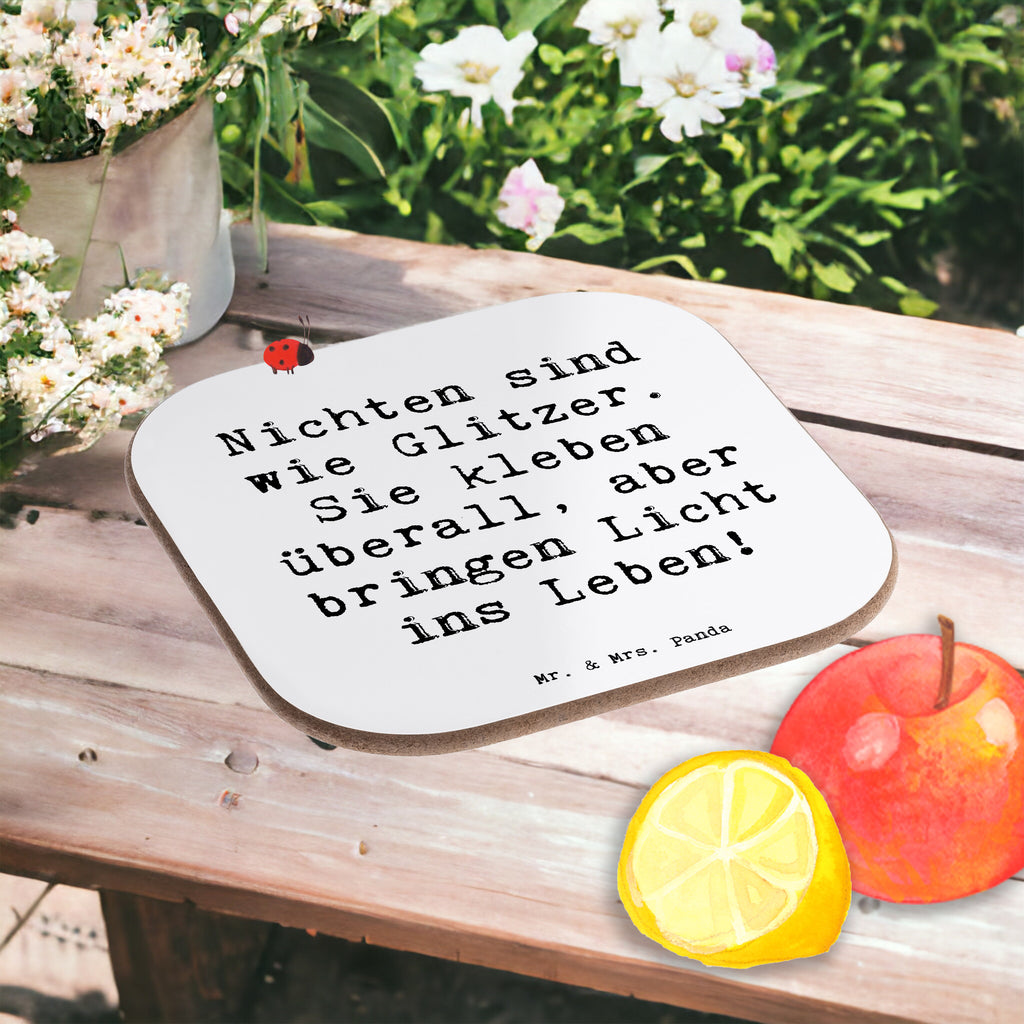 Nichten sind
wie Glitzer.
Sie kleben
überall, aber
bringen Licht
ins Leben!
Mr. & Mrs. Panda